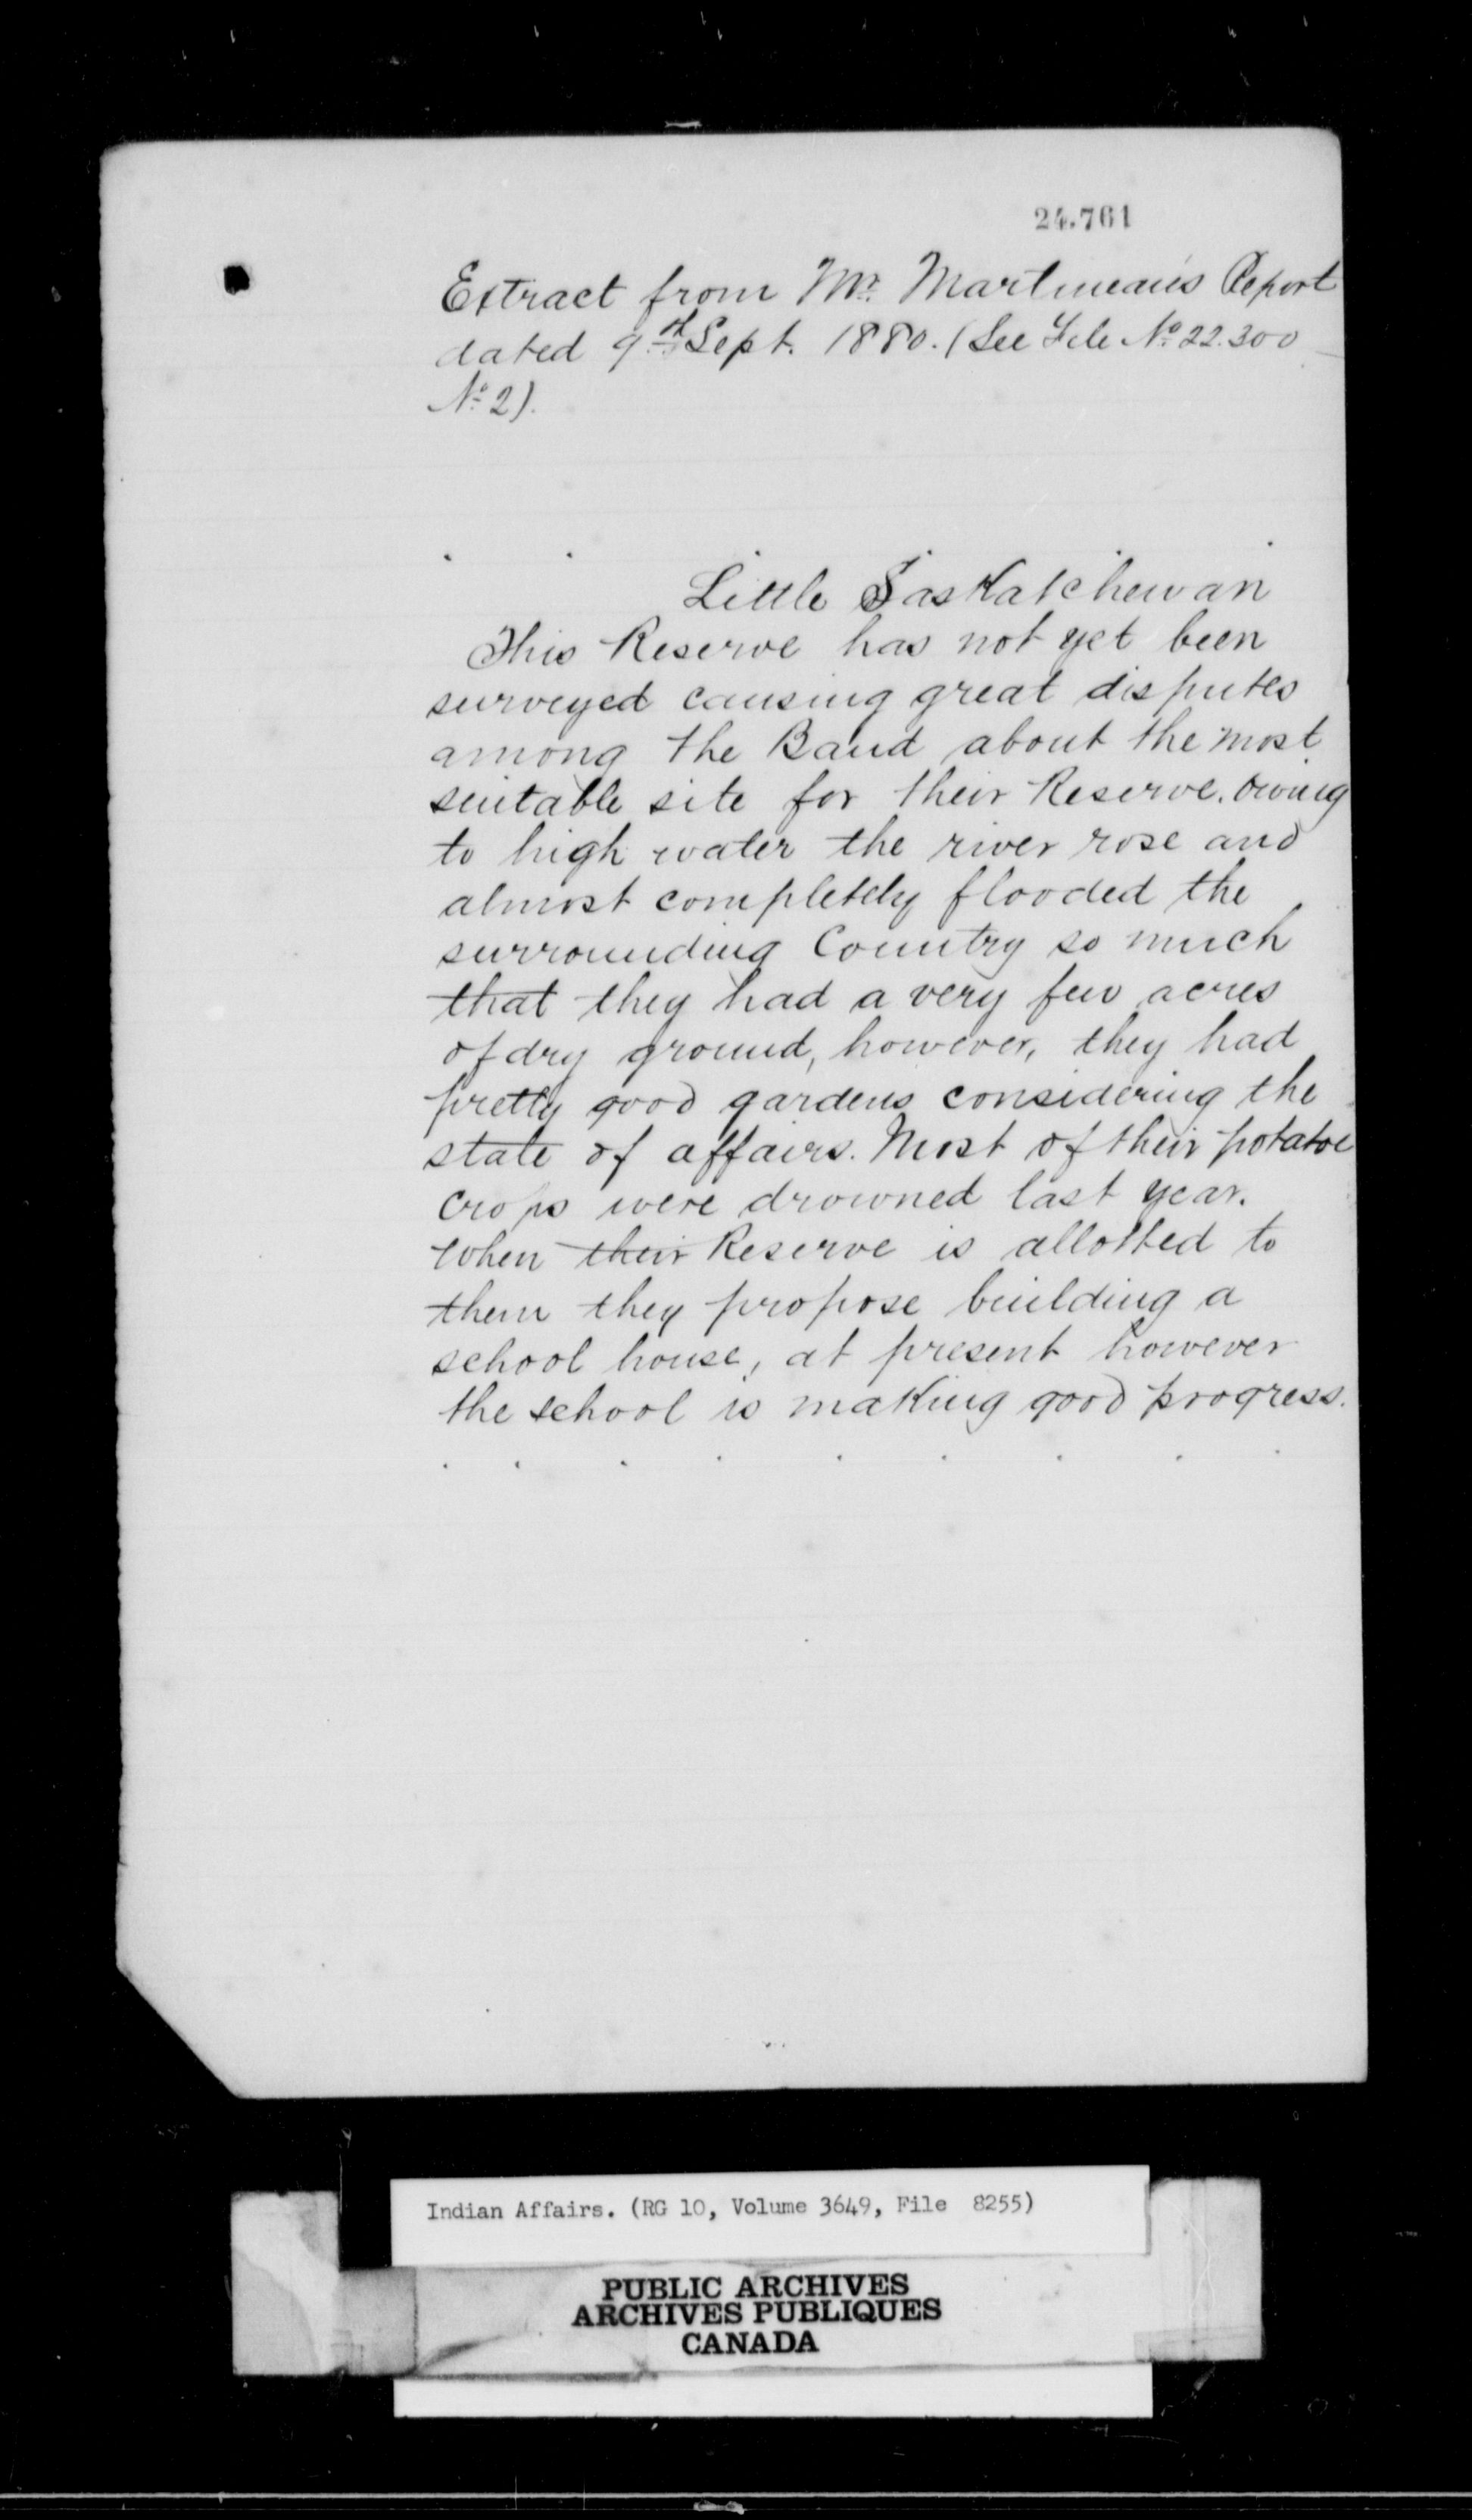 24.761
Extract from Mr. Martineau's Report
dated 9th Sept. 1880. (See File No 22.300
No 2).
Little Saskatchewan
This Reserve has not yet been
surveyed causing great disputes
among the Band about the most
suitable site for their Reserve. Owing
to high water the river rose and
almost completely flooded the
surrounding Country so much
that they had a very few acres
of dry ground, however, they had
pretty good gardens considering the
state of affairs. Most of their potatoe
crops were drowned last year.
When their Reserve is allotted to
them they propose building a
school house, at present however
the school is making good progress.
Indian Affairs. (RG 10, Volume 3649, File 8255)
PUBLIC ARCHIVES
ARCHIVES PUBLIQUES
CANADA